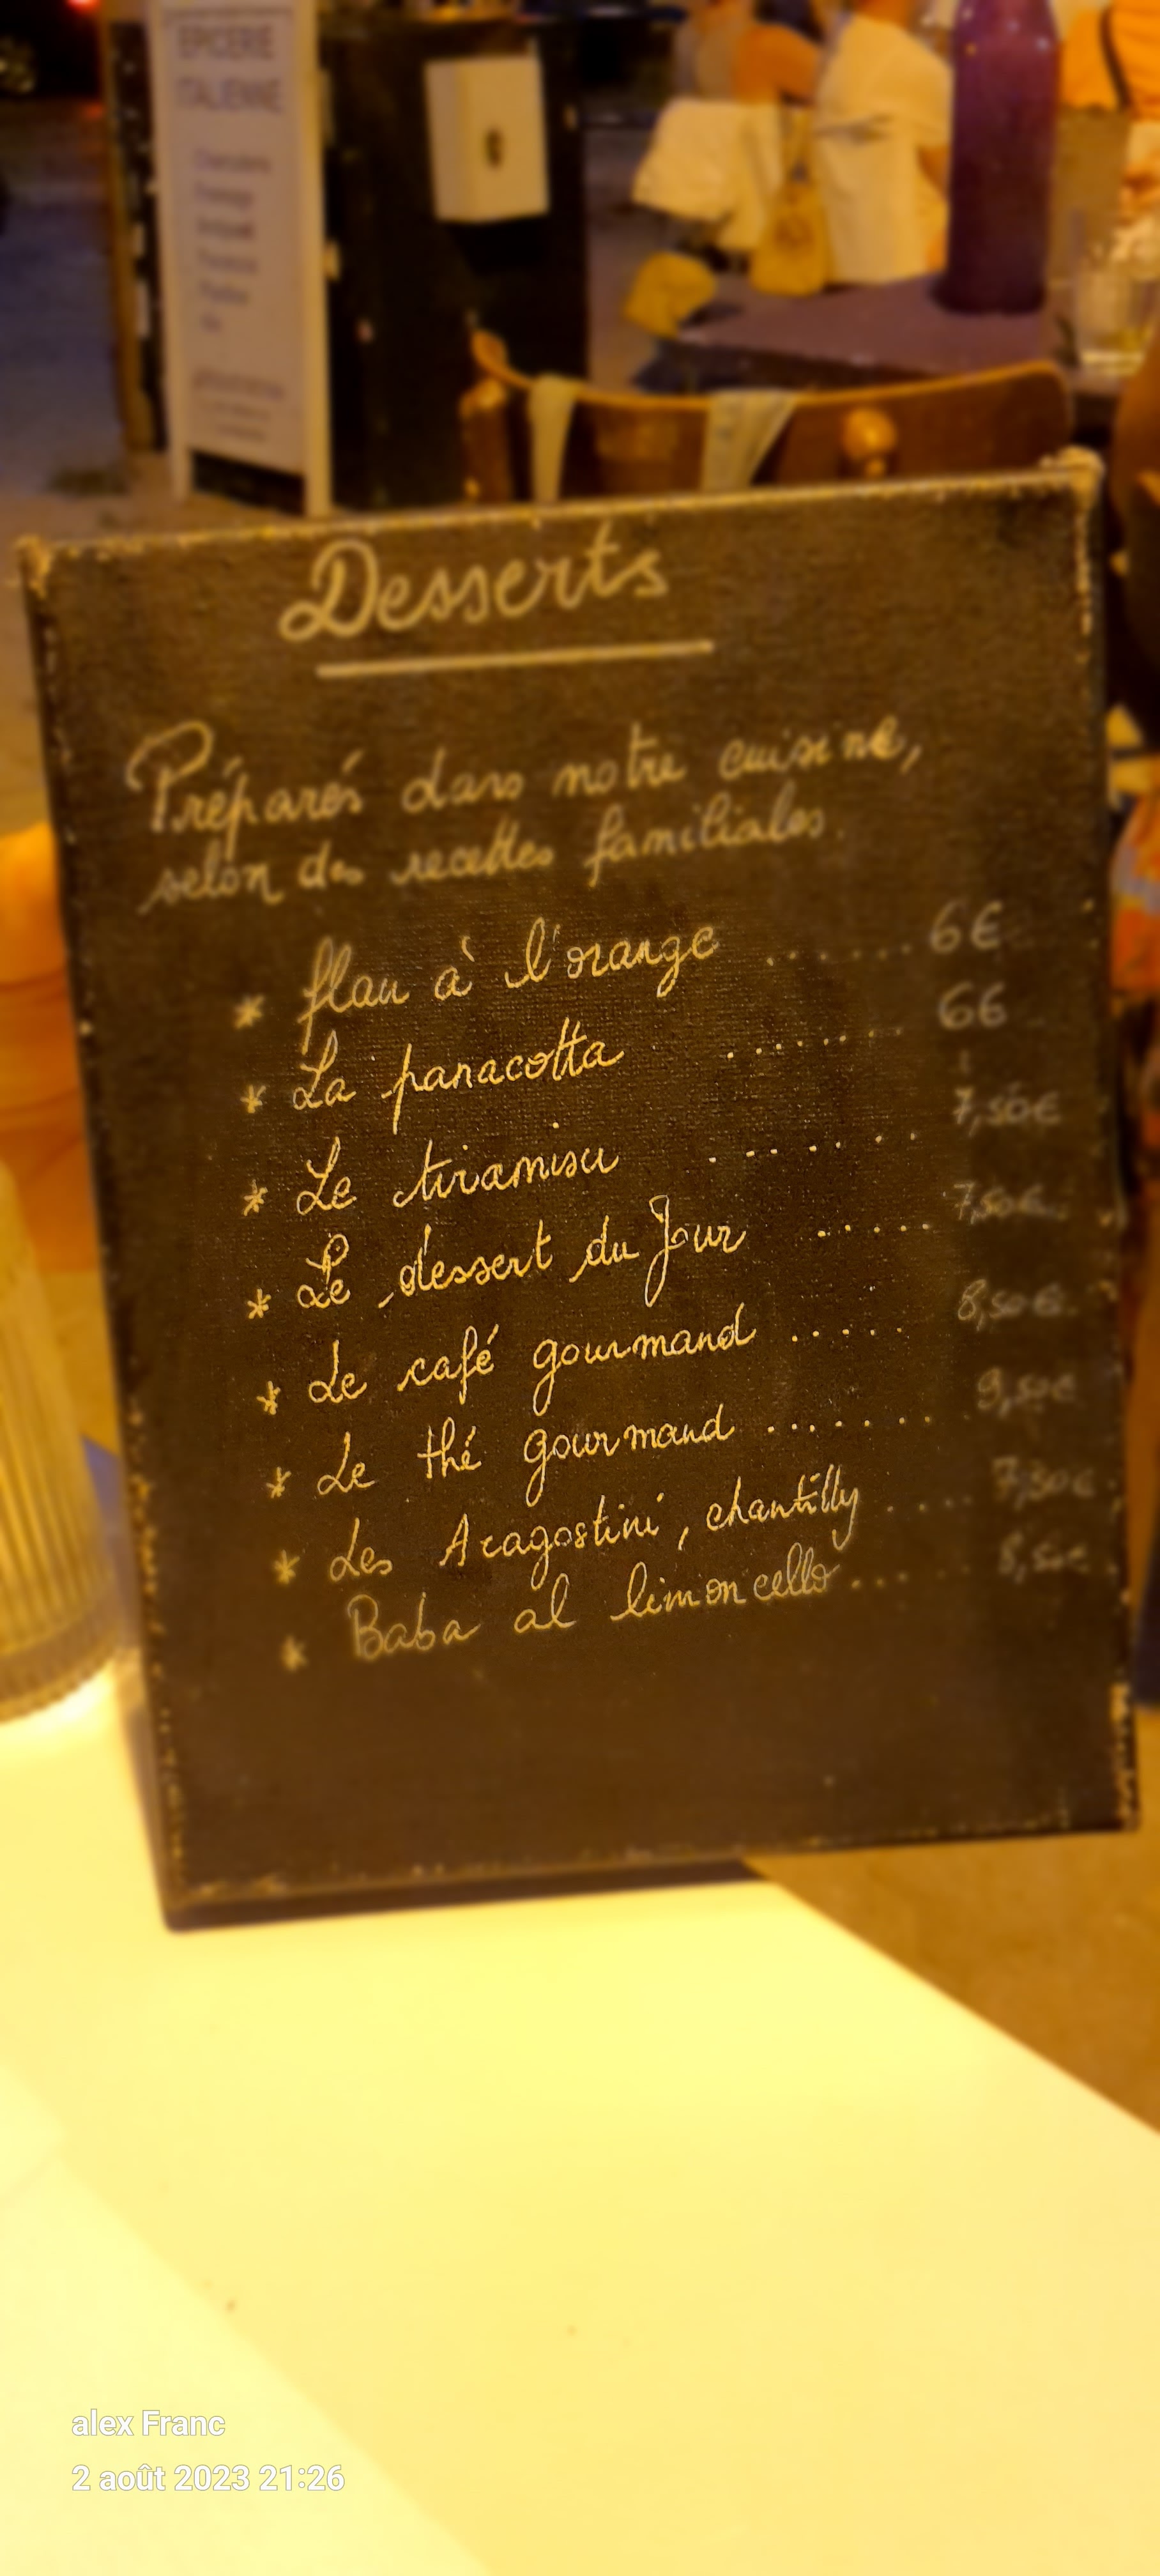 EPICERIE
ITALIENNE
Desserts
Préparés dans notre cuisine,
selon des recettes familiales.
* flan à l'orange ...... 6€
* La panacotta ....... 6€
* Le tiramisu ....... 7,50€
* Le dessert du Jour ...... 7,50€
* Le café gourmand ..... 8,50€
* Le thé gourmand ....... 9,50€
* Les Aragostini, chantilly .... 7,50€
* Baba al limoncello ...... 8,50€
alex Franc
2 août 2023 21:26